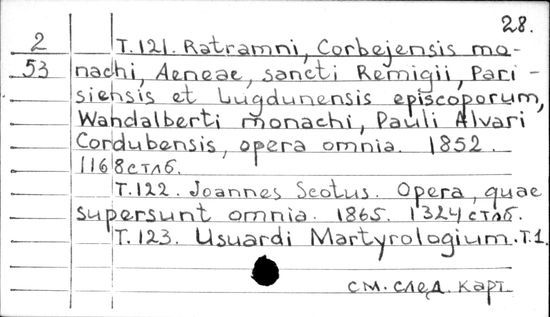 28.
2 T.121. Ratramni, Corbejensis mo-
53 nachi, Aeneae, sancti Remigii, Pari-
siensis et Lugdunensis episcoporum,
Wandalberti monachi, Pauli Alvari
Cordubensis, opera omnia. 1852.
1168 стлб.
T.122. Joannes Scotus. Opera, quae
supersunt omnia. 1865. 1324 стлб.
T.123. Usuardi Martyrologium. T.1.
см. след. карт.